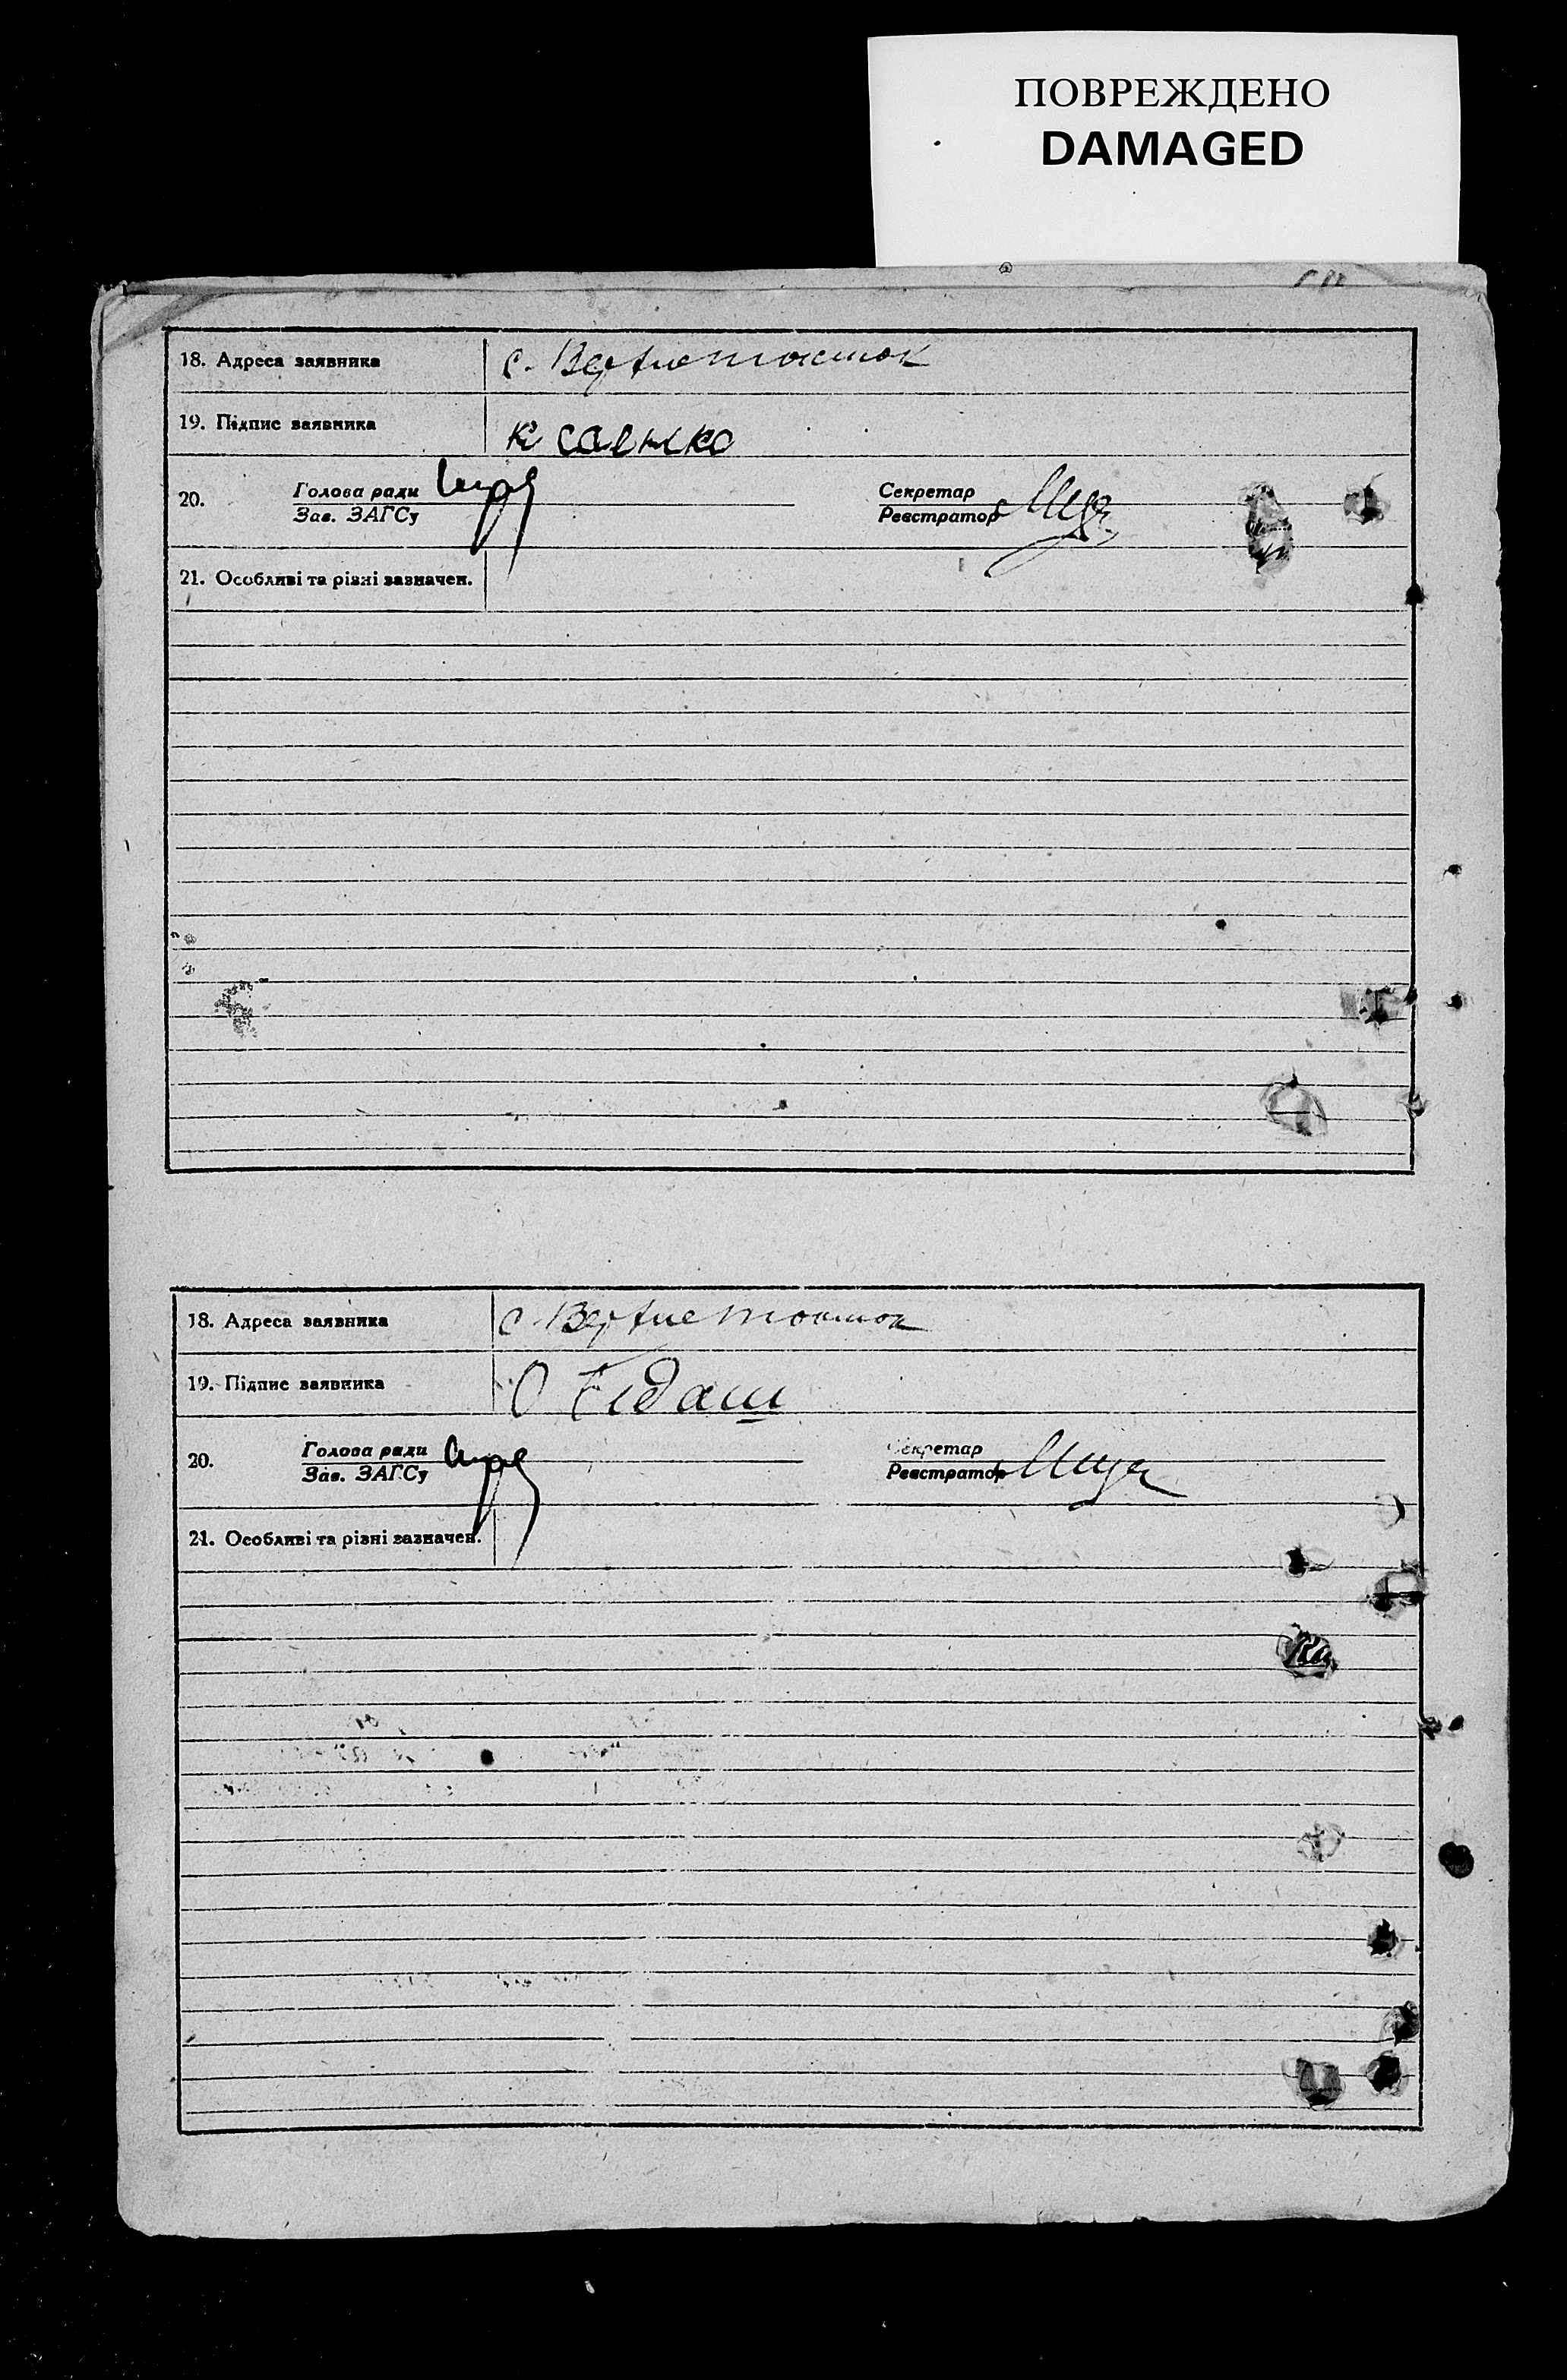 ПОВРЕЖДЕНО
DAMAGED
18. Адреса заявника с. Верхнетокмак
19. Підпис заявника
20. Голова ради Секретар
Зав. ЗАГСу Реєстратор
21. Особливі та різні зазначен.
18. Адреса заявника с. Верхнетокмак
19. Підпис заявника О Гідаш
20. Голова ради Секретар
Зав. ЗАГСу Реєстратор
21. Особливі та різні зазначен.